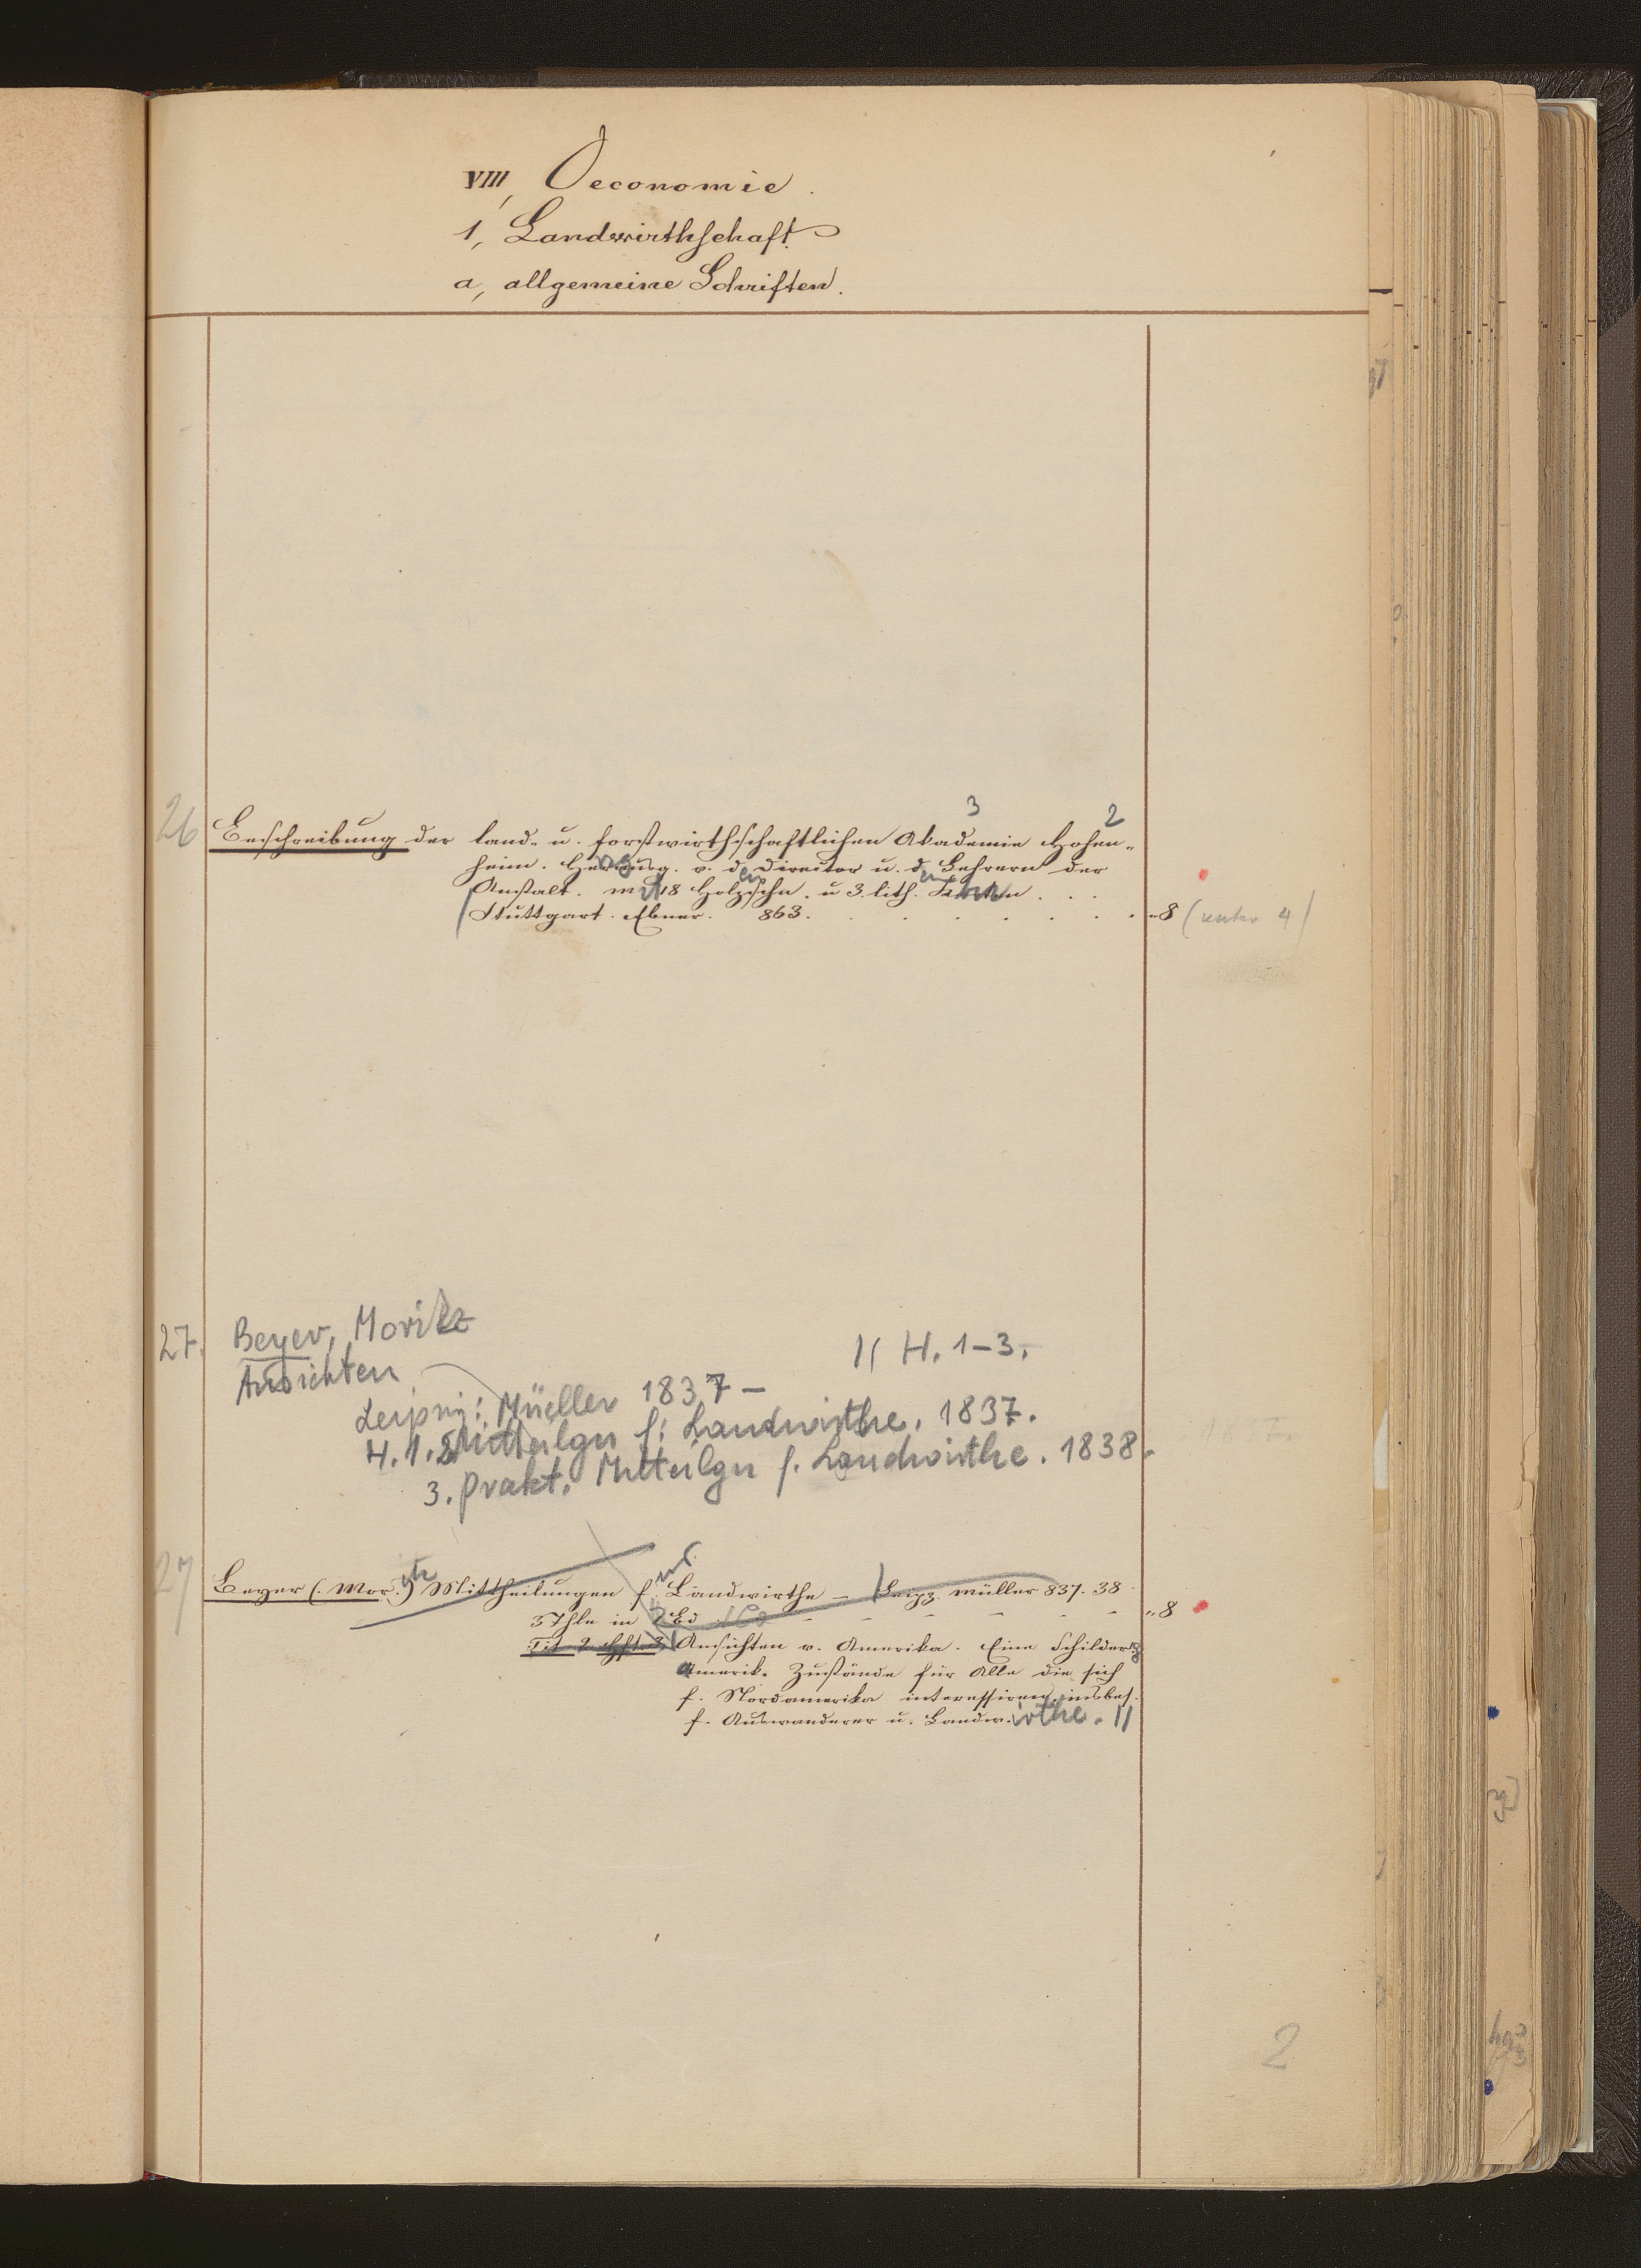 VIII, Oeconomie.
1, Landwirthschaft.
a, allgemeine Schriften.
3 2
26 Beschreibung der land- u. forstwirthschaftlichen Akademie Hohen-
heim. Herausg. v. den Director u. den Lehrern der
Anstalt. mit 18 Holzschn. u 3. lith.
Stuttgart. Ebner. 863. 8 (unter 4)
27. Beyer, Moritz
Ansichten || H. 1-3.
Leipzig: Müller 1837 -
H. 1. 2. Mitteilgn f. Landwirthe. 1837.
3. prakt. Mitteilgn f. Landwirthe. 1838.
27 Beyer (Mor.) Mittheilungen f. Landwirthe - Leipz. Müller 837. 38
3 Thle in 2 Bd 8
Tit. 2 Hft. 3 Ansichten v. Amerika. Eine Schilderg
Amerik. Zustände für Alle die sich
f. Nordamerika interessiren, insbes.
f. Auswanderer u. Landwirthe. ||
2